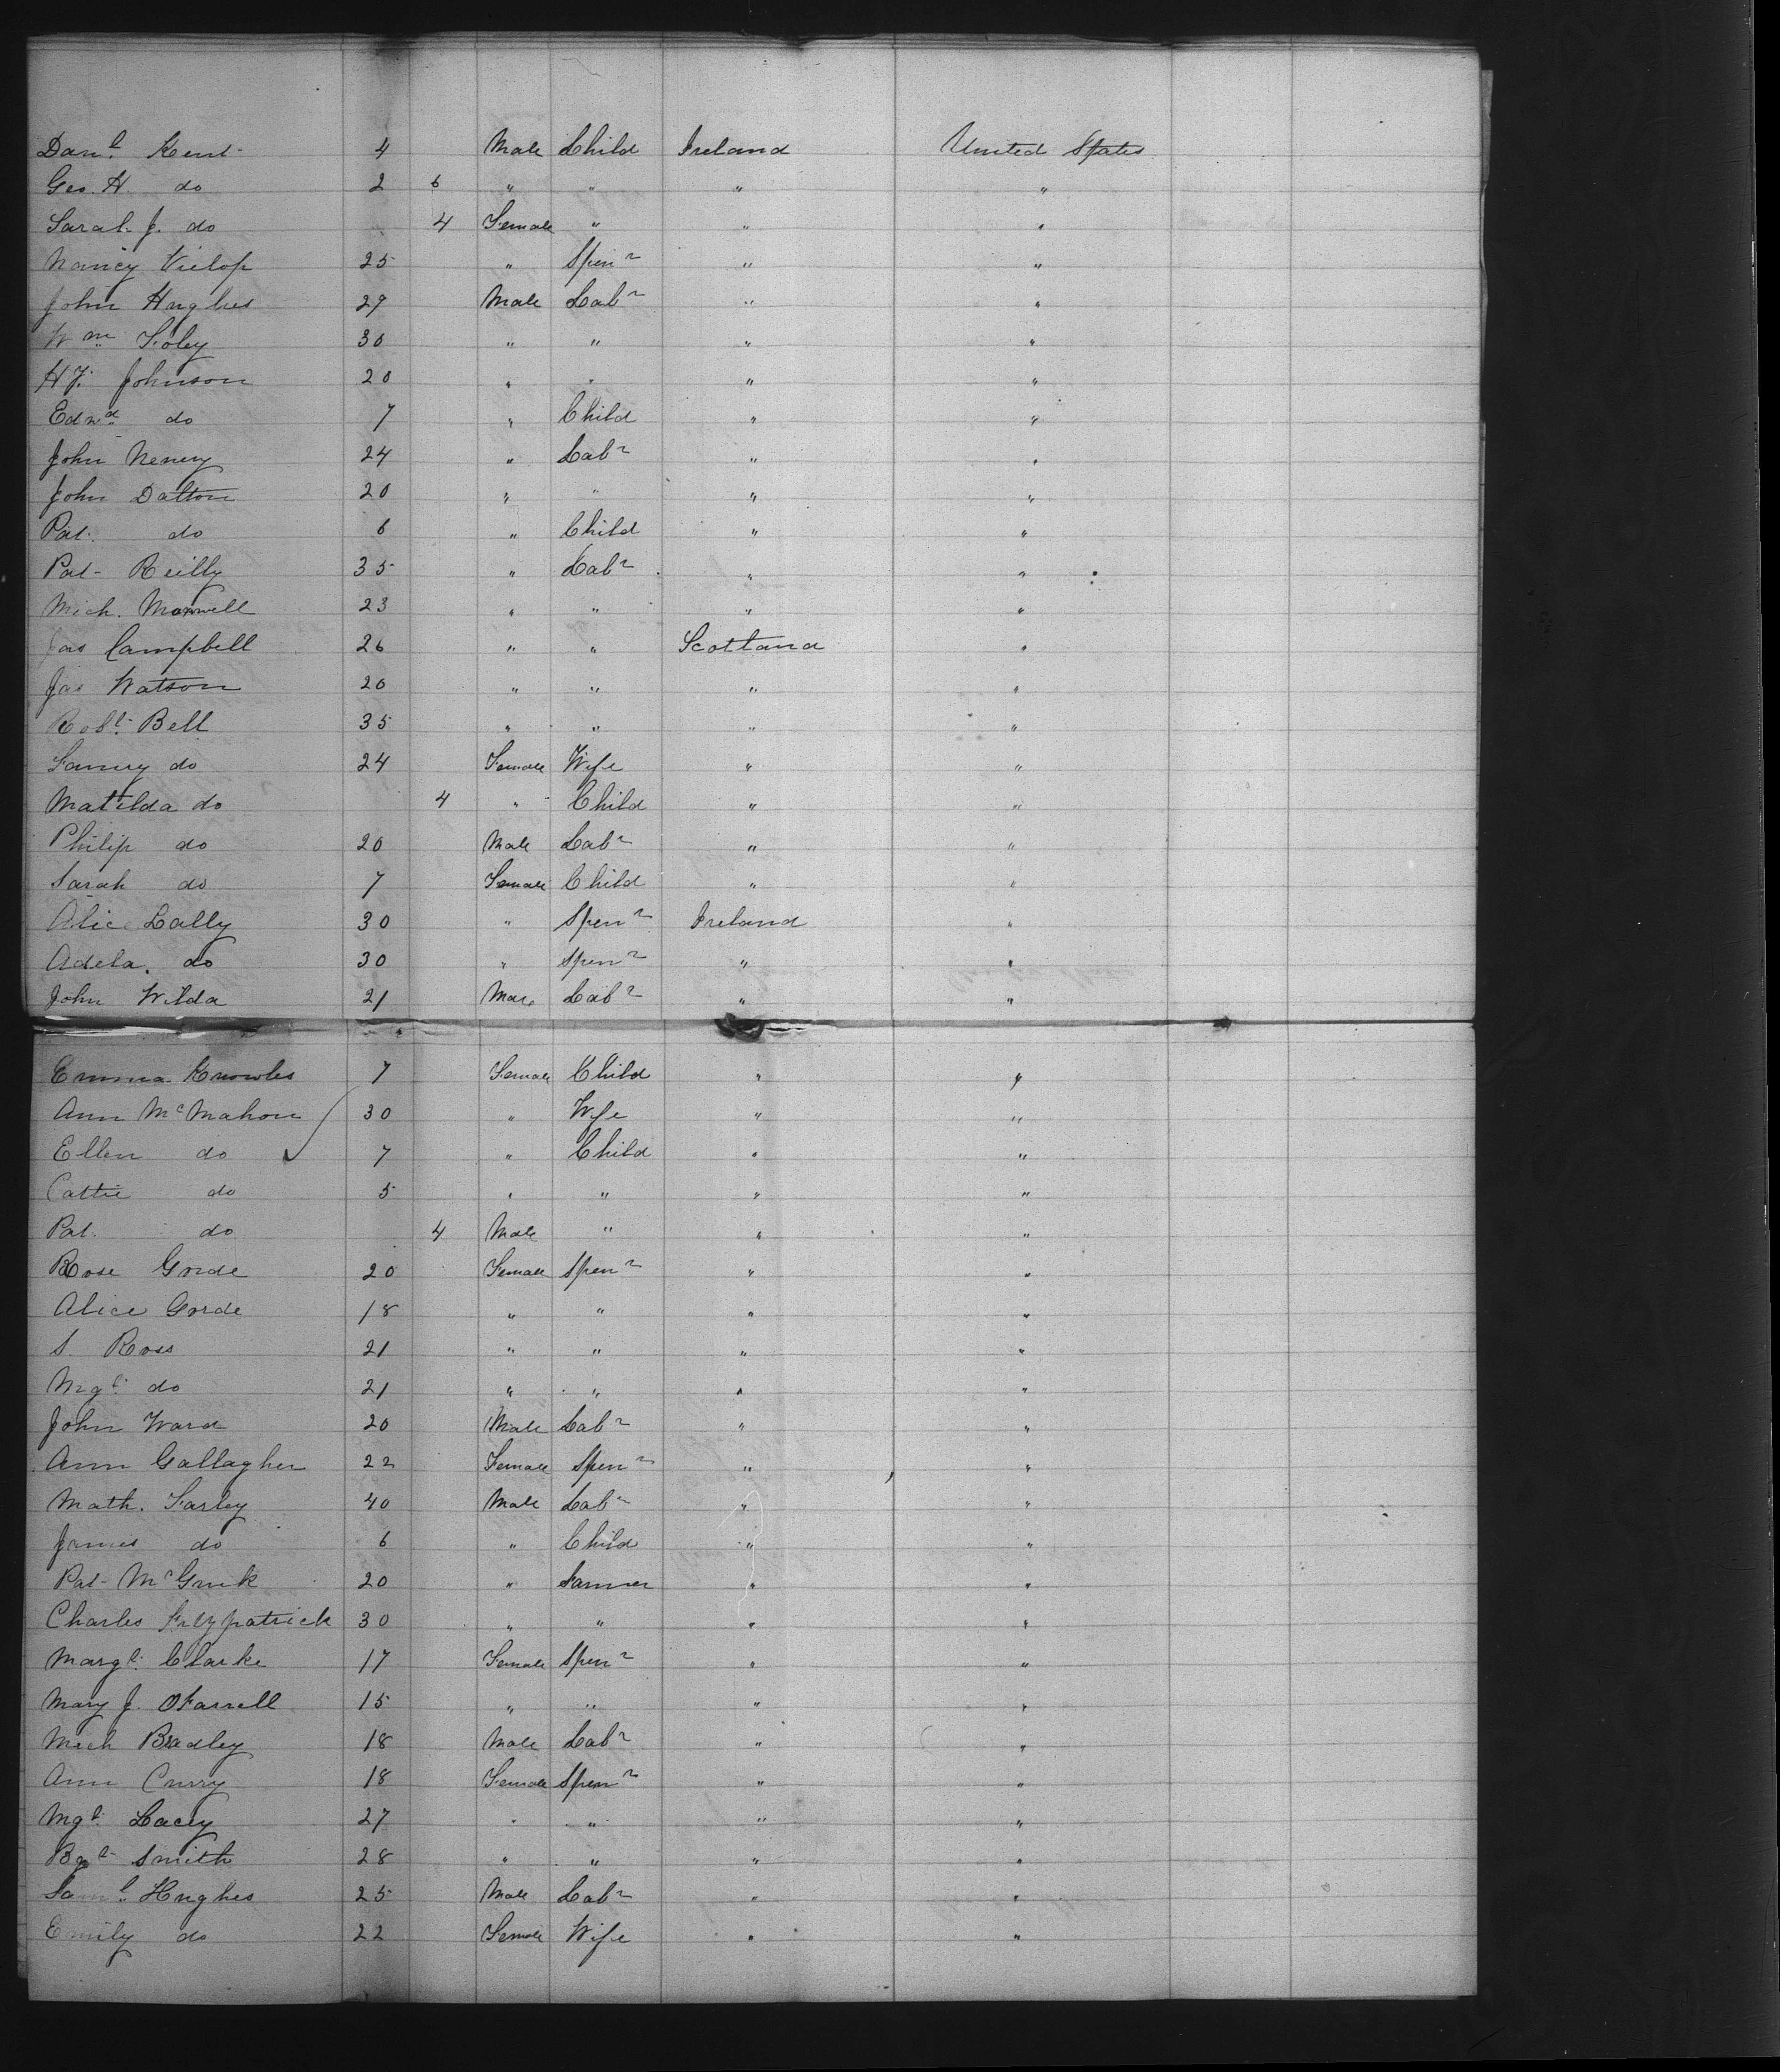 Danl. Kent 4 Male Child Ireland United States
Geo. H. do 2 6 " " " "
Sarah J. do 4 Female " " "
Nancy 25 " Spenr " "
John Hughes 29 Male Labr " "
Wm Foley 30 " " " "
H.J. Johnson 20 " " " "
Edwd do 7 " Child " "
John Nenery 24 " Labr " "
John Dalton 20 " " " "
Pat. do 6 " Child " "
Pat- Reilly 35 " Labr " "
Mich. Maxwell 23 " " " "
Jas Campbell 26 " " Scotland "
Jas Watson 20 " " " "
Robt. Bell 35 " " " "
Fanny do 24 Female Wife " "
Matilda do 4 " Child " "
Philip do 20 Male Labr " "
Sarah do 7 Female Child " "
Alice Lally 30 " Spenr Ireland "
Adela. do 30 " Spenr " "
John Wilda 21 Male Labr " "
Emma Knowles 7 Female Child " "
Ann McMahon 30 " Wife " "
Ellen do 7 " Child " "
Cattie do 5 " " " "
Pat. do 4 Male " " "
Rose Gorde 20 Female Spenr " "
Alice Gorde 18 " " " "
S. Ross 21 " " " "
Mgt. do 21 " " " "
John Ward 20 Male Labr " "
Ann Gallagher 22 Female Spenr " "
Math. Farley 40 Male Labr " "
James do 6 " Child " "
Pat- McGurk 20 " Farmer " "
Charles Fitzpatrick 30 " " " "
Margt. Clarke 17 Female Spenr " "
Mary J. OFarrell 15 " " " "
Mich Bradley 18 Male Labr " "
Ann Curry 18 Female Spenr " "
Mgt. Lacey 27 " " " "
Bgt- Smith 28 " " " "
Saml. Hughes 25 Male Labr " "
Emily do 22 Female Wife " "